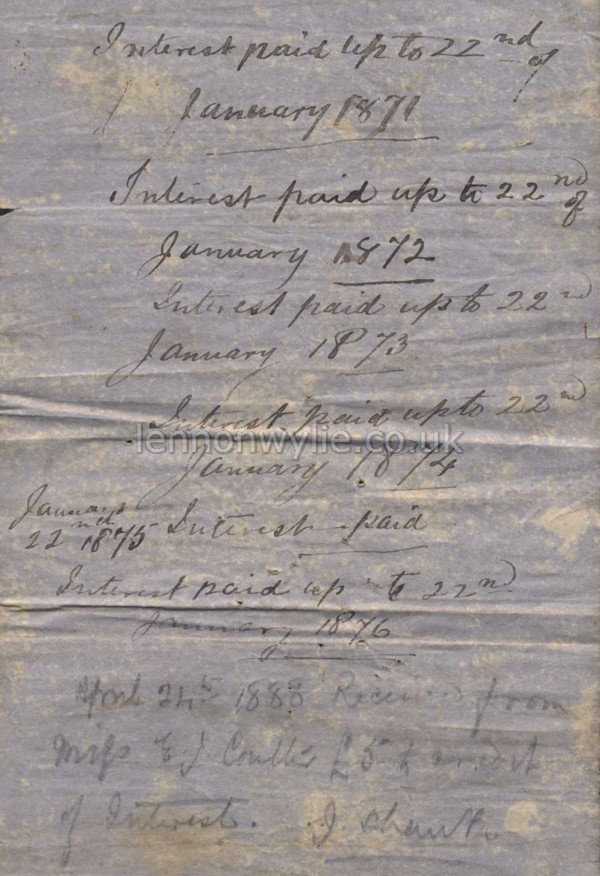 Interest paid up to 22nd of
January 1871
Interest paid up to 22nd of
January 1872
Interest paid up to 22nd
January 1873
Interest paid up to 22nd
lennonwylie.co.uk
January 1874
January
22nd 1875 Interest paid
Interest paid up to 22nd
January 1876
April 24th 1883 Received from
Miss E J Coulter £5
of Interest. J.